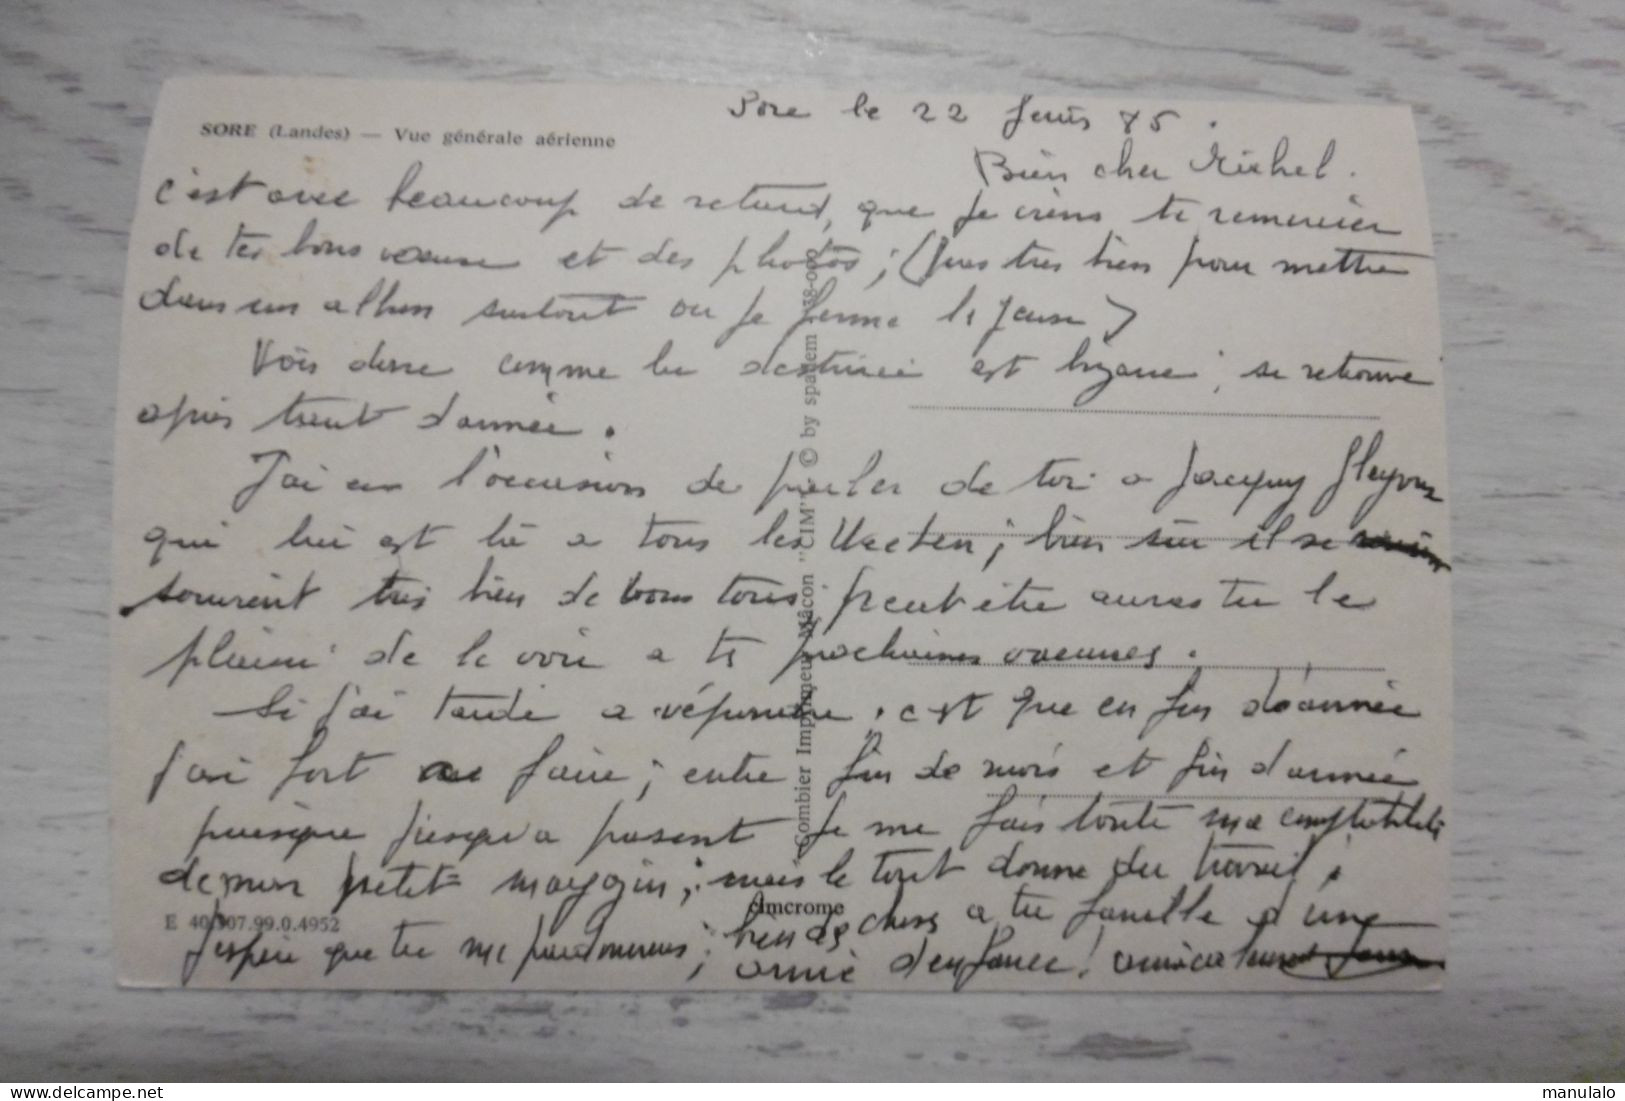 Sore le 22 85.
SORE (Landes) — Vue générale aérienne
Bien cher Michel.
c'est avec beaucoup de retard, que je viens te remercier
de tes bons voeux et des photos; ( très bien pour mettre
dans un album surtout ou je ferme les yeux )
Vois donc comme la destinée est bizarre, se retrouvé
après trent d'année.
J'ai eu l'occasion de parler de toi a Jacquy
qui lui est là a tous les ; bien sûr il se
souvient très bien de vous tous peut être auras tu le
plaisir de le voir a tes prochaines vacances.
Si j'ai tardé a répondre, c'est que en fin d'année
j'ai fort a faire; entre fin de mois et fin d'année
puisque jusqu'a present je me fais toute ma comptabilité
de mon petit magasin; mais le tout donne du travail;
j'espère que tu me pardonneras; bien des choses a ta famille d'une
amie d'enfance! amicalement
© by spadem 38-000
Combier Imprimeur Mâcon "CIM"
cimcrome
E 40.307.99.0.4952
delcampe.net
manulalo